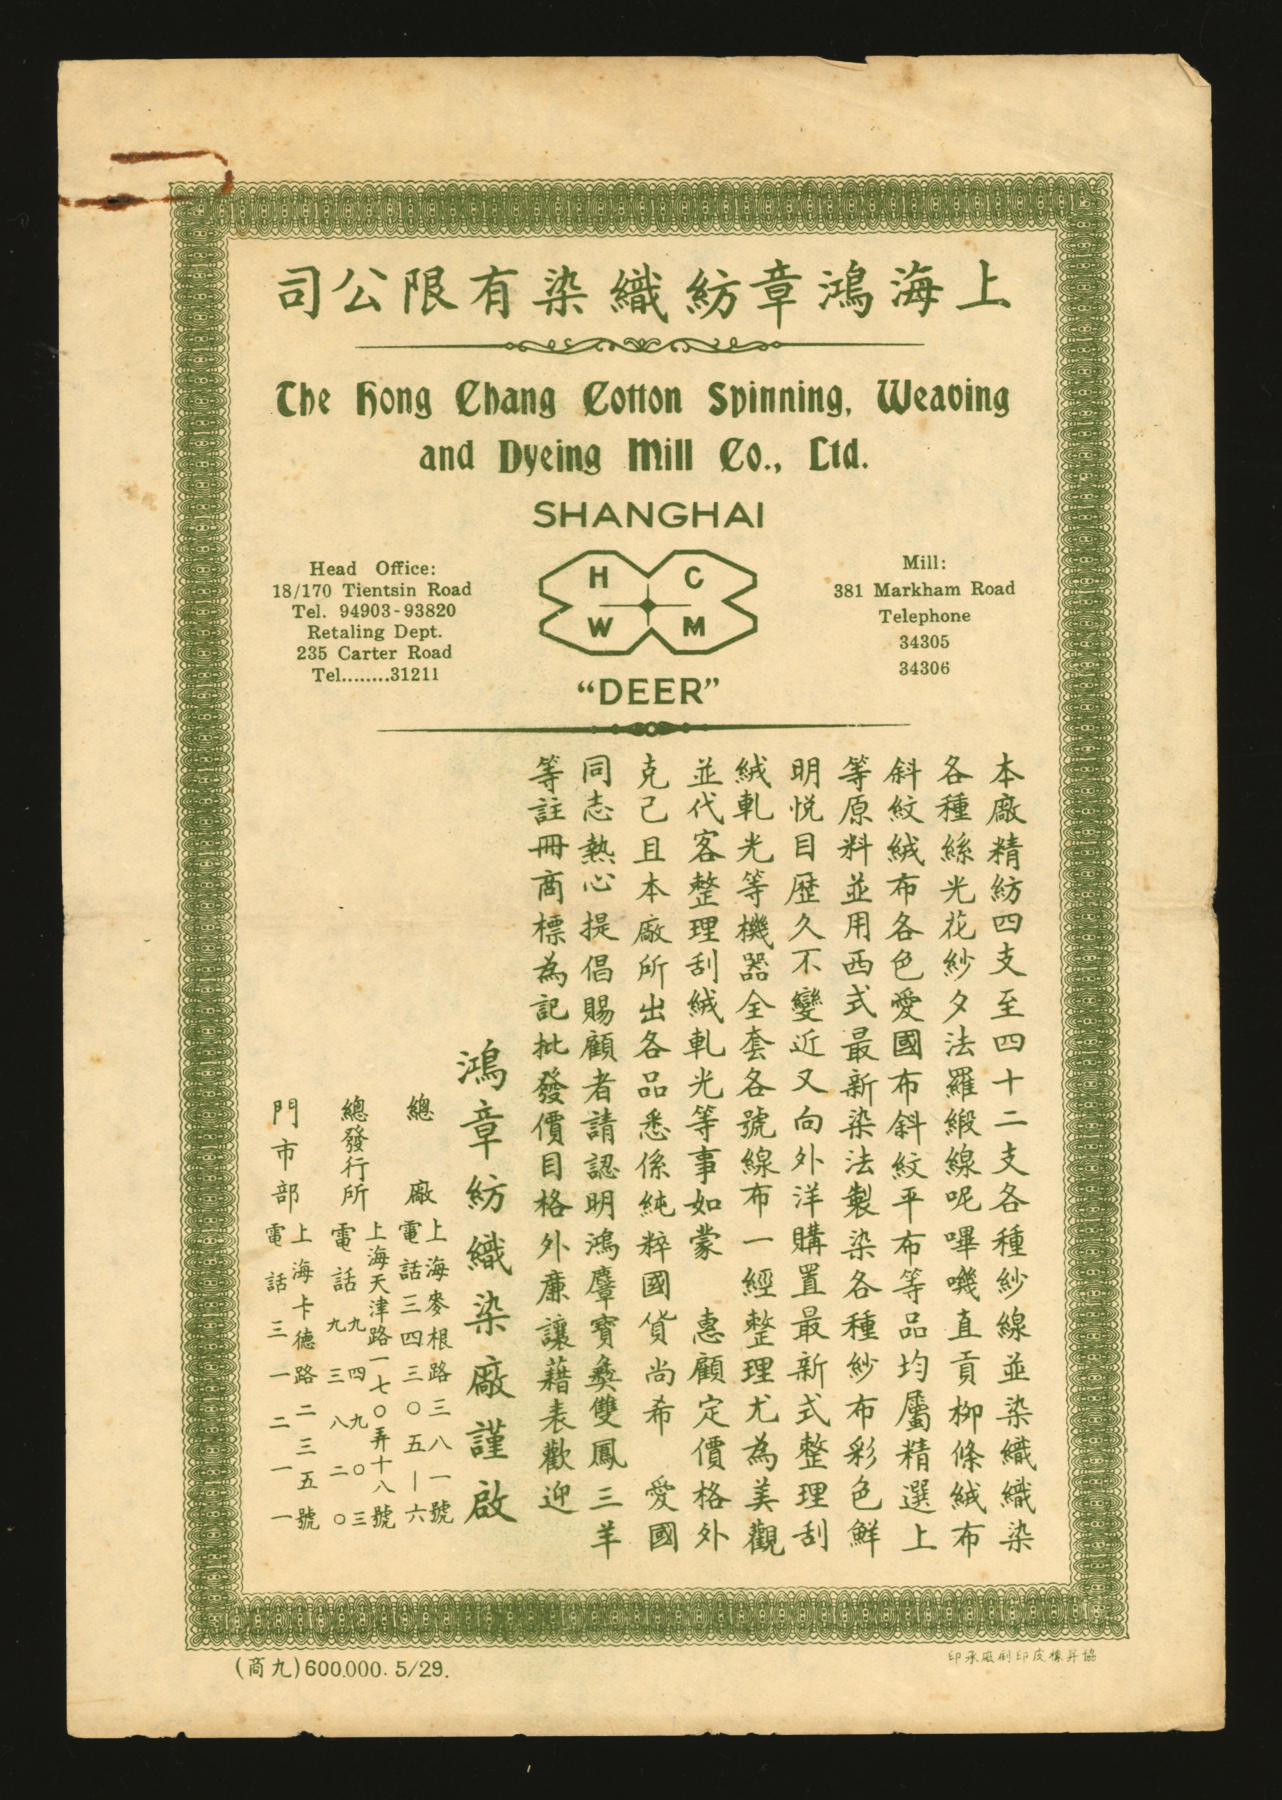 上海鴻章紡織染有限公司
The Hong Chang Cotton Spinning, Weaving
and Dyeing Mill Co., Ltd.
SHANGHAI
Head Office:
18/170 Tientsin Road
Tel. 94903-93820
Retaling Dept.
235 Carter Road
Tel........31211
H C
W M
"DEER"
Mill:
381 Markham Road
Telephone
34305
34306
本廠精紡四支至四十二支各種紗線並染織織染
各種絲光花紗夕法羅緞線呢嗶嘰直貢柳條絨布
斜紋絨布各色愛國布斜紋平布等品均屬精選上
等原料並用西式最新染法製染各種紗布彩色鮮
明悅目歷久不變近又向外洋購置最新式整理刮
絨軋光等機器全套各號線布一經整理尤為美觀
並代客整理刮絨軋光等事如蒙 惠顧定價格外
克己且本廠所出各品悉係純粹國貨尚希 愛國
同志熱心提倡賜顧者請認明鴻麞寶彝雙鳳三羊
等註冊商標為記批發價目格外廉讓藉表歡迎
鴻章紡織染廠謹啟
總廠
上海麥根路三八一號
電話三四三〇五—六
總發行所
上海天津路一七〇弄十八號
電話九四九〇三
九三八二〇
門市部
上海卡德路二三五號
電話三一二一一
(商九)600.000. 5/29.
協昇橡皮印刷廠承印